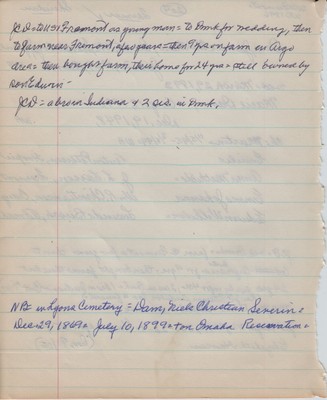 JCD = to U.S. Fremont as young man = to Dmk for wedding, then
to farm near Fremont, a few years = then 9 yrs on farm in Argo
area = then bought farm, their home for 24 yrs = still owned by
son Edwin =
JCD = a bro in Indiana & 2 sis. in Dmk.
NB = in Lyons Cemetery = Dam, Niels Christian Severin =
Dec. 29, 1869 = July 10, 1899 = on Omaha Reservation =